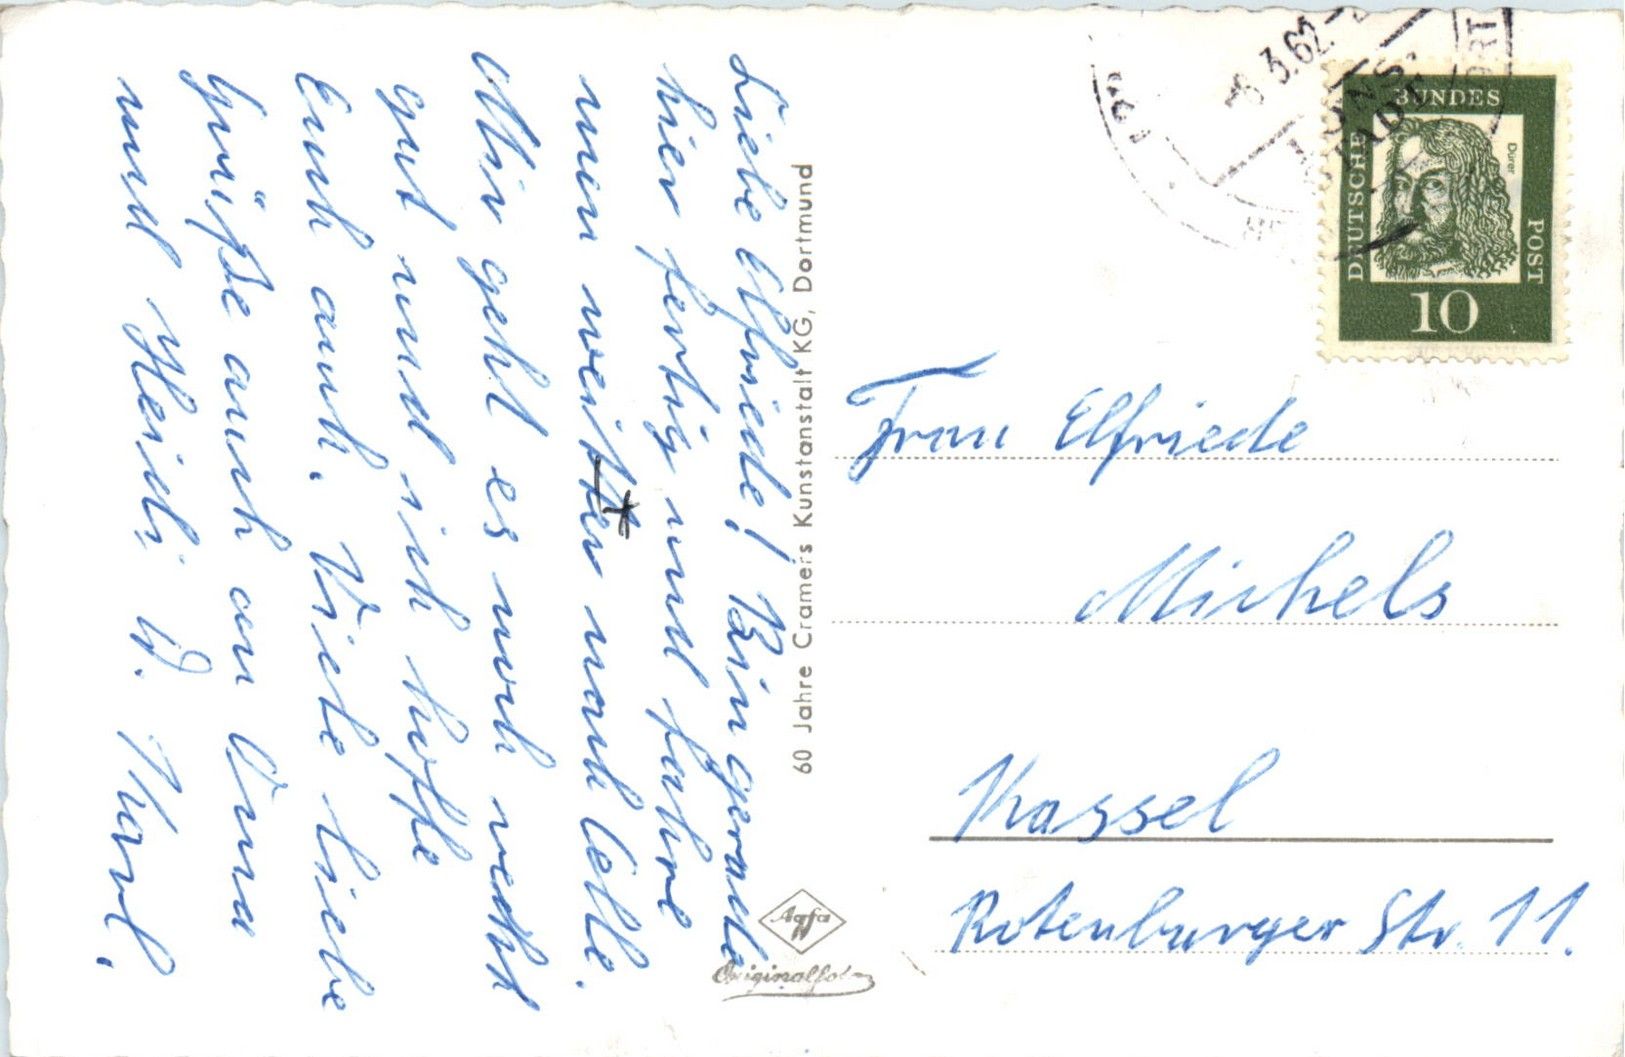 Liebe Elfriede! Bin gerade
hier fertig und fahre
nun weiter nach Celle.
Mir geht es noch recht
gut und ich hoffe
Euch auch. Viele liebe
Grüße auch an Oma
und Heidi. D. Karl.
60 Jahre Cramers Kunstanstalt KG, Dortmund
Agfa
Originalfoto
3.62
DEUTSCHE
BUNDES
POST
Dürer
10
Frau Elfriede
Michels
Kassel
Rotenburger Str. 11.